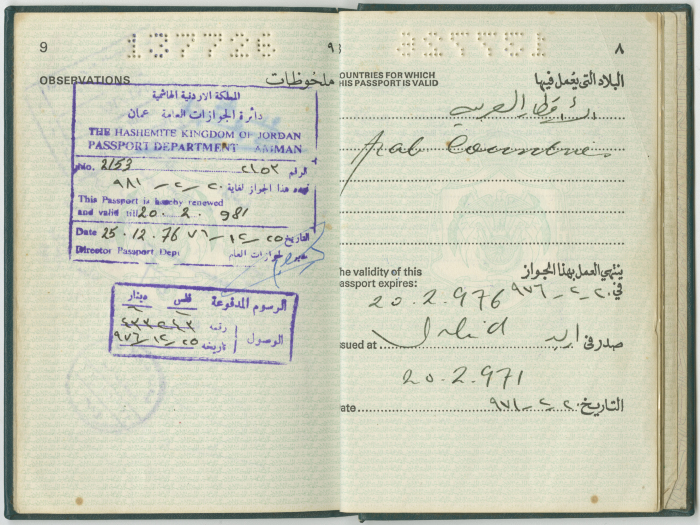 9
137726
OBSERVATIONS
ملحوظات
المملكة الاردنية الهاشمية
دائرة الجوازات العامة عمان
THE HASHEMITE KINGDOM OF JORDAN
PASSPORT DEPARTMENT AMMAN
No. 2153 ٢١٥٣ الرقم
هذا الجواز لغاية ٢٠ - ٢ - ٩٨١
This Passport is hereby renewed
and valid till 20. 2. 981
Date 25.12.76 ٧٦/١٢/٢٥ التاريخ
Director Passport Dept مدير الجوازات العام
الرسوم المدفوعة فلس دينار
الوصول
رقمه
تاريخه ٩٧٦/١٢/٢٥
٨
٩
137726
البلاد التي يعمل فيها
OUNTRIES FOR WHICH
HIS PASSPORT IS VALID
الأقطار العربية
Arab Countries
ينتهي العمل بهذا الجواز
he validity of this
assport expires:
في ٢٠ - ٢ - ٩٧٦
20.2.976
صدر في اربد
Irbid
sued at
20.2.971
ate
التاريخ ٢٠ - ٢ - ٩٧١